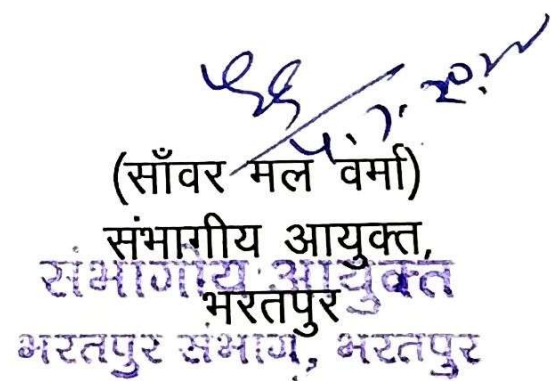 (साँवर मल वर्मा)
संभागीय आयुक्त,
भरतपुर
संभागीय आयुक्त
भरतपुर संभाग, भरतपुर